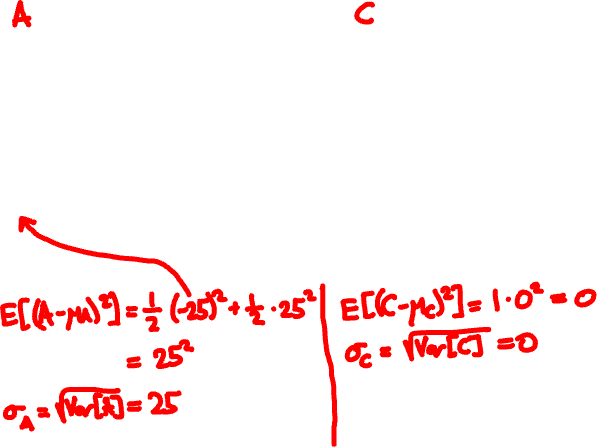 A
C
E[(A-μA)²] = 1/2 (-25)² + 1/2 · 25²
= 25²
σ_A = √Var[A] = 25
E[(C-μc)²] = 1 · 0² = 0
σ_C = √Var[C] = 0